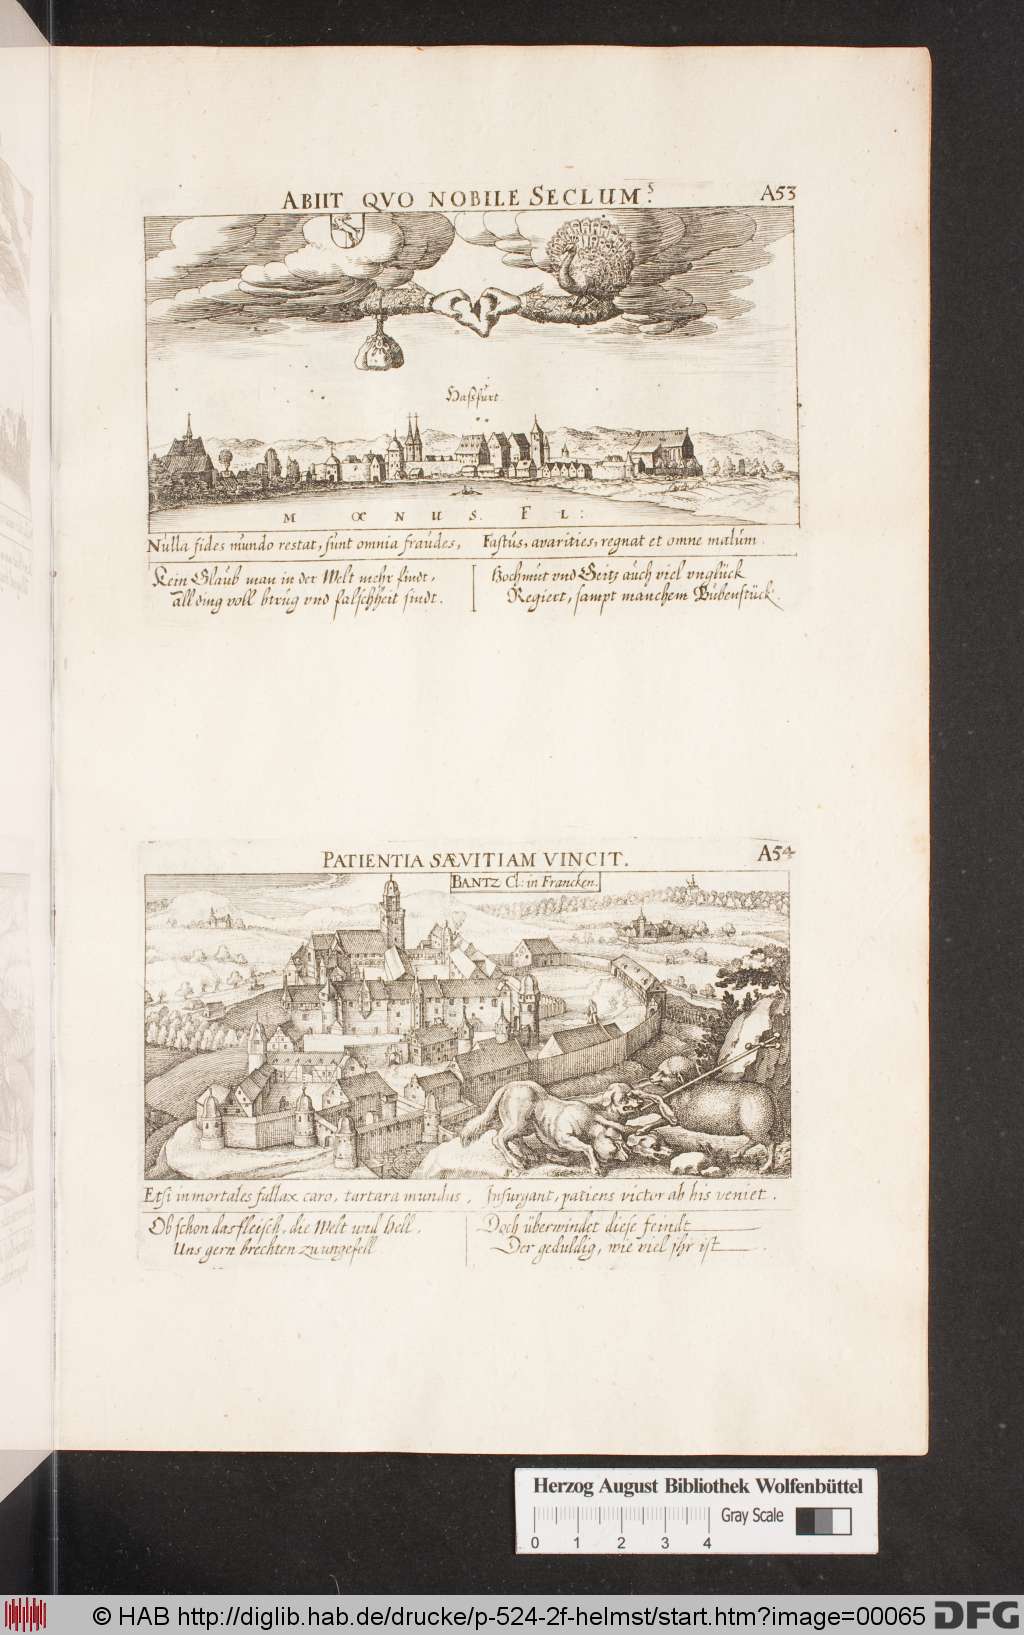 ABIIT QVO NOBILE SECLUM?
A53
Hassfurt
MŒNUS. FL:
Nulla fides mundo restat, sunt omnia fraudes, Fastus, avarities, regnat et omne malum.
Kein Glaub man in der Welt mehr findt,
all ding voll btrug vnd falschheit sindt.
Hochmut vnd Geitz auch viel vnglück
Regiert, sampt manchem Bubenstück.
PATIENTIA SÆVITIAM VINCIT.
A54
BANTZ Cl: in Francken.
Etsi inmortales fallax caro, tartara mundus, Insurgant, patiens victor ab his veniet.
Ob schon das fleisch, die Welt und Hell,
Uns gern brechten zu ungefell
Doch überwindet diese feindt
Der geduldig, wie viel jhr ist.
Herzog August Bibliothek Wolfenbüttel
Gray Scale
0 1 2 3 4
© HAB http://diglib.hab.de/drucke/p-524-2f-helmst/start.htm?image=00065
DFG